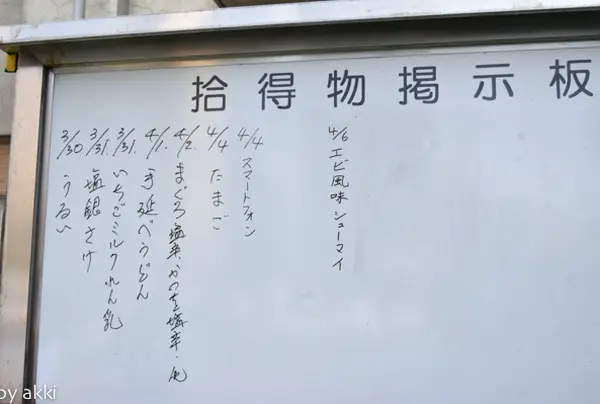 拾得物掲示板
3/30 うるい
3/31. 塩銀さけ
3/31. いちごミルクれん乳
4/1. 手延べうどん
4/2. まぐろ塩辛・かつを塩辛・
4/4 たまご
4/4 スマートフォン
4/6 エビ風味シューマイ
by akki